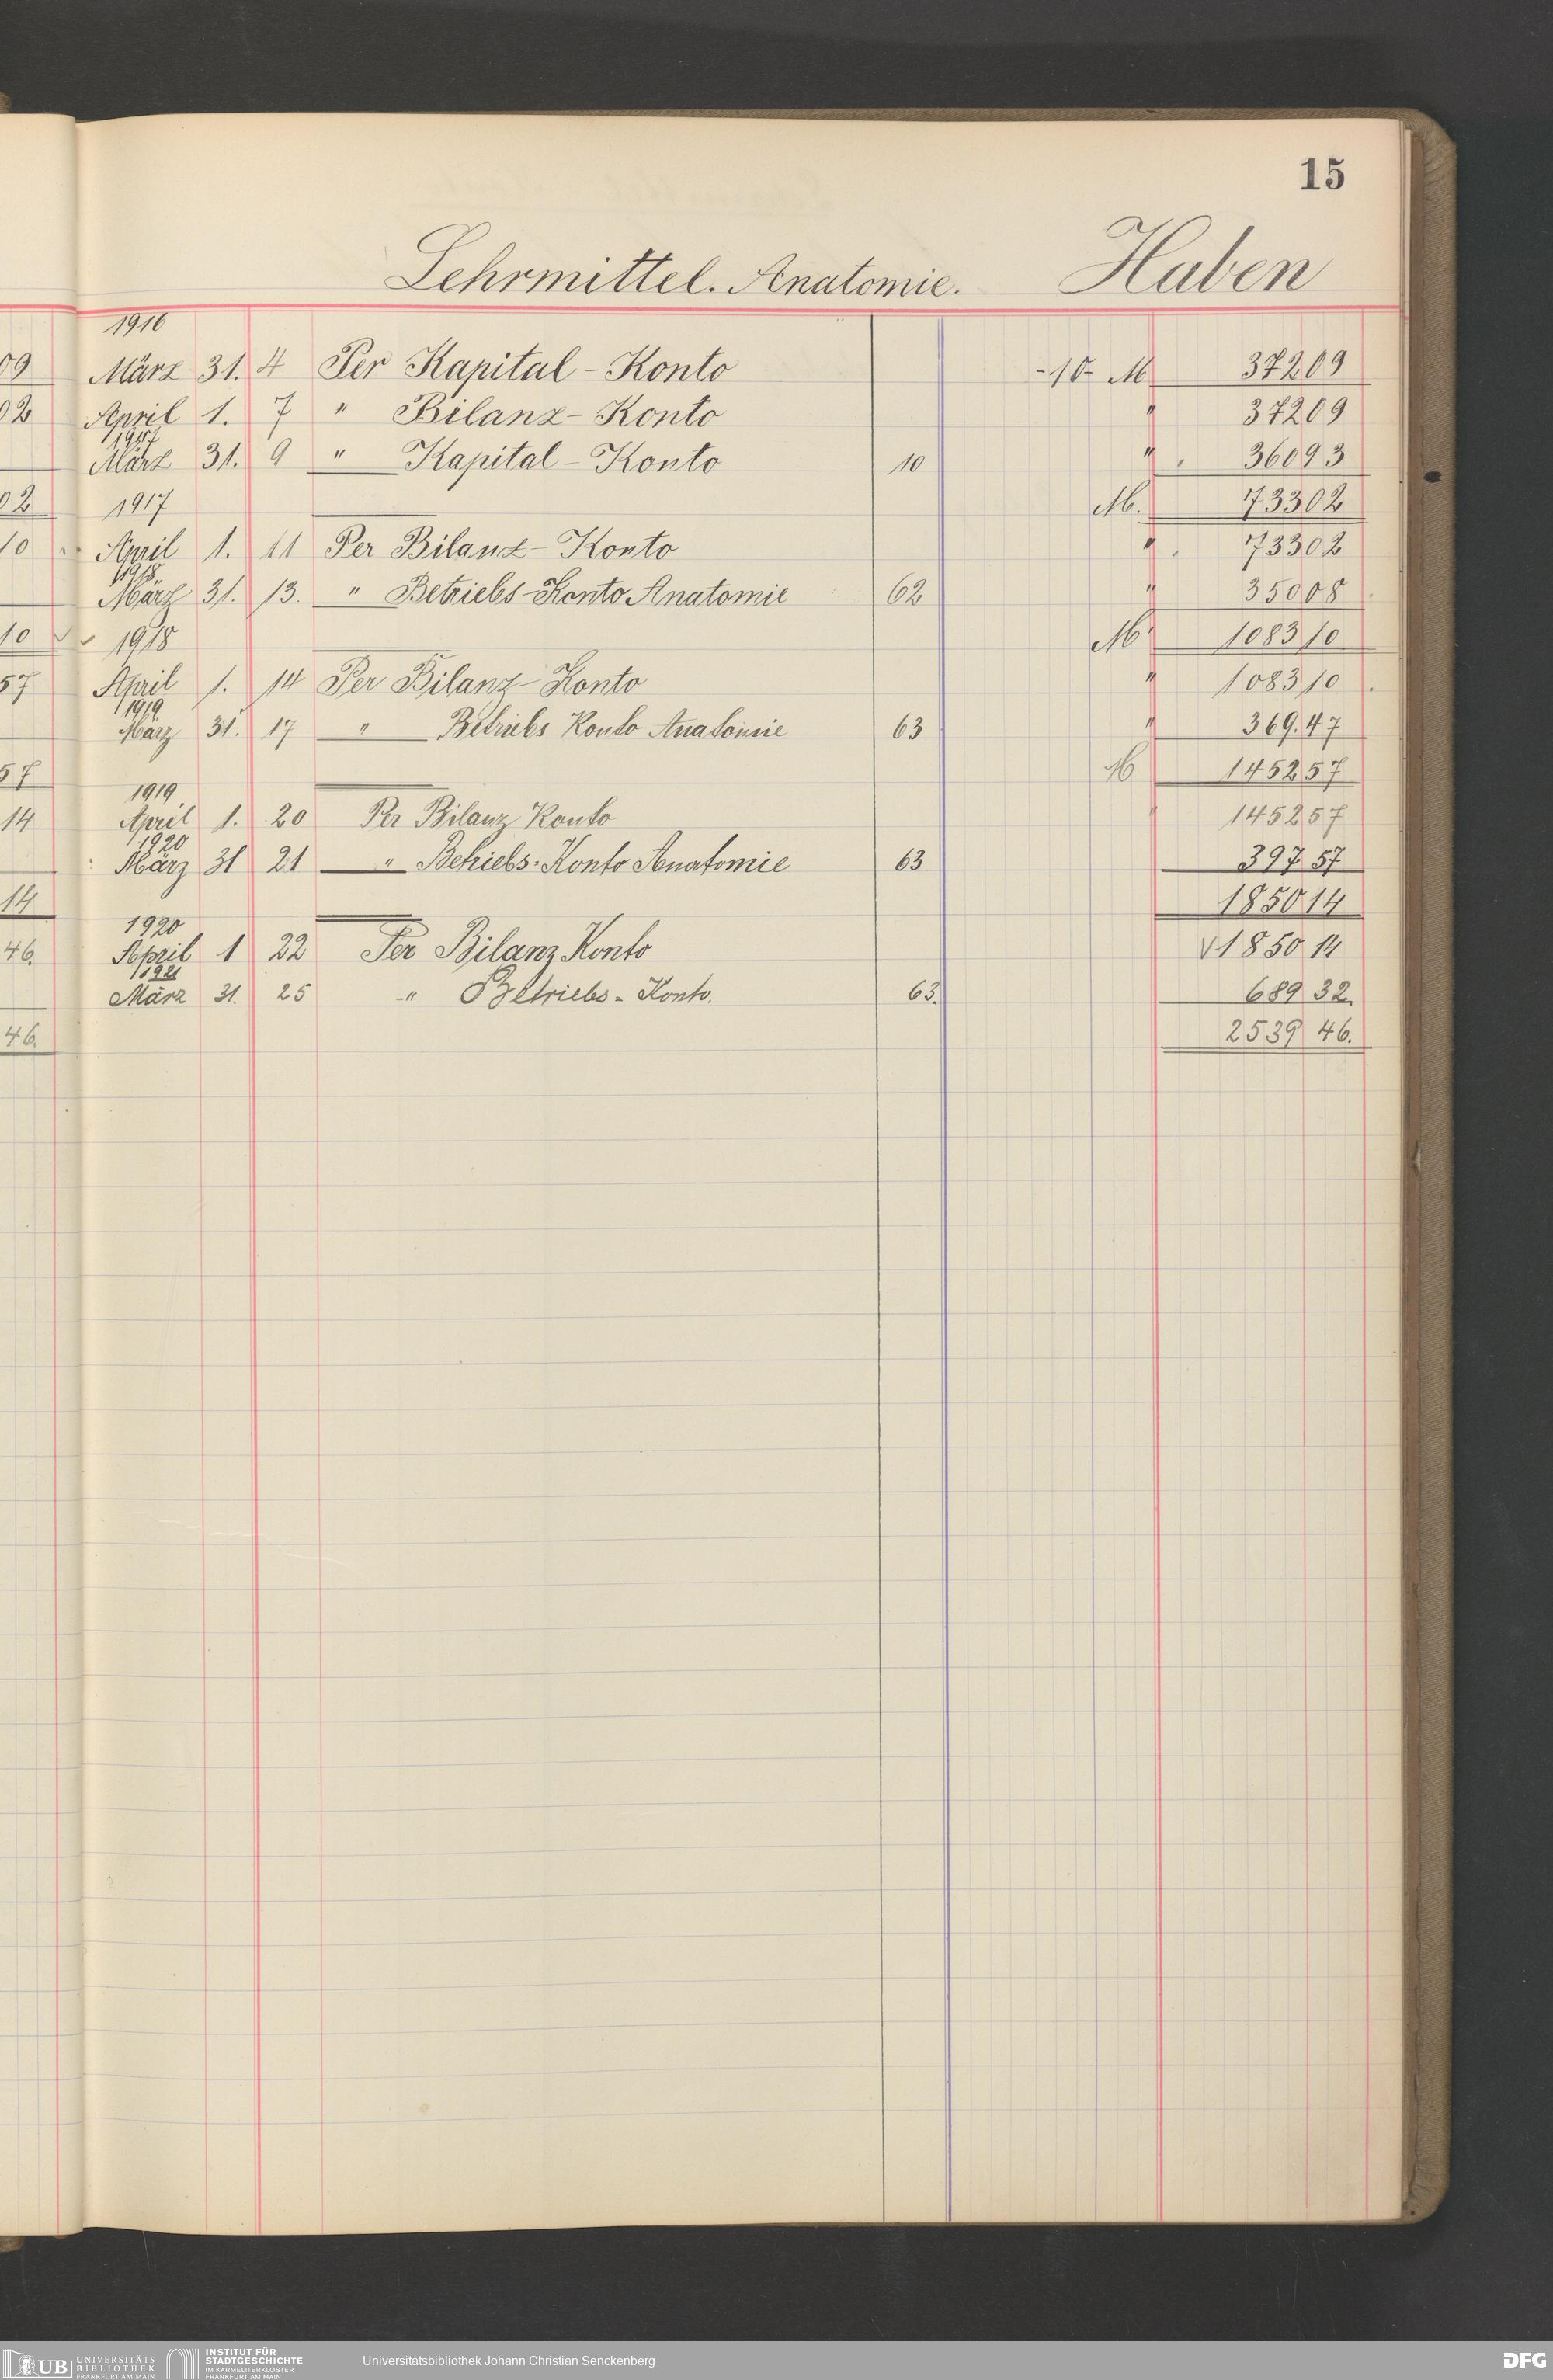 15
Lehrmittel. Anatomie. Haben
1916
09 März 31. 4 Per Kapital-Konto -10- M 372 09
02 April 1. 7 " Bilanz-Konto " 372 09
1917
März 31. 9 " Kapital-Konto 10 " 360 93
02 1917 M. 733 02
10 April 1. 11 Per Bilanz-Konto " 733 02
1918
März 31. 13. " Betriebs-Konto Anatomie 62 " 350 08
10 1918 M 1083 10
57 April 1. 14 Per Bilanz-Konto " 1083 10
1919
März 31. 17 " Betriebs Konto Anatomie 63 " 369.47
57 M 1452 57
1919
14 April 1. 20 Per Bilanz Konto " 1452 57
1920
März 31 21 " Betriebs-Konto Anatomie 63 397 57
14 1850 14
1920
46. April 1 22 Per Bilanz Konto V 1850 14
1921
März 31. 25 " Betriebs-Konto. 63. 689 32.
46. 2539 46.
UB UNIVERSITÄTS BIBLIOTHEK FRANKFURT AM MAIN
INSTITUT FÜR STADTGESCHICHTE IM KARMELITERKLOSTER FRANKFURT AM MAIN
Universitätsbibliothek Johann Christian Senckenberg
DFG